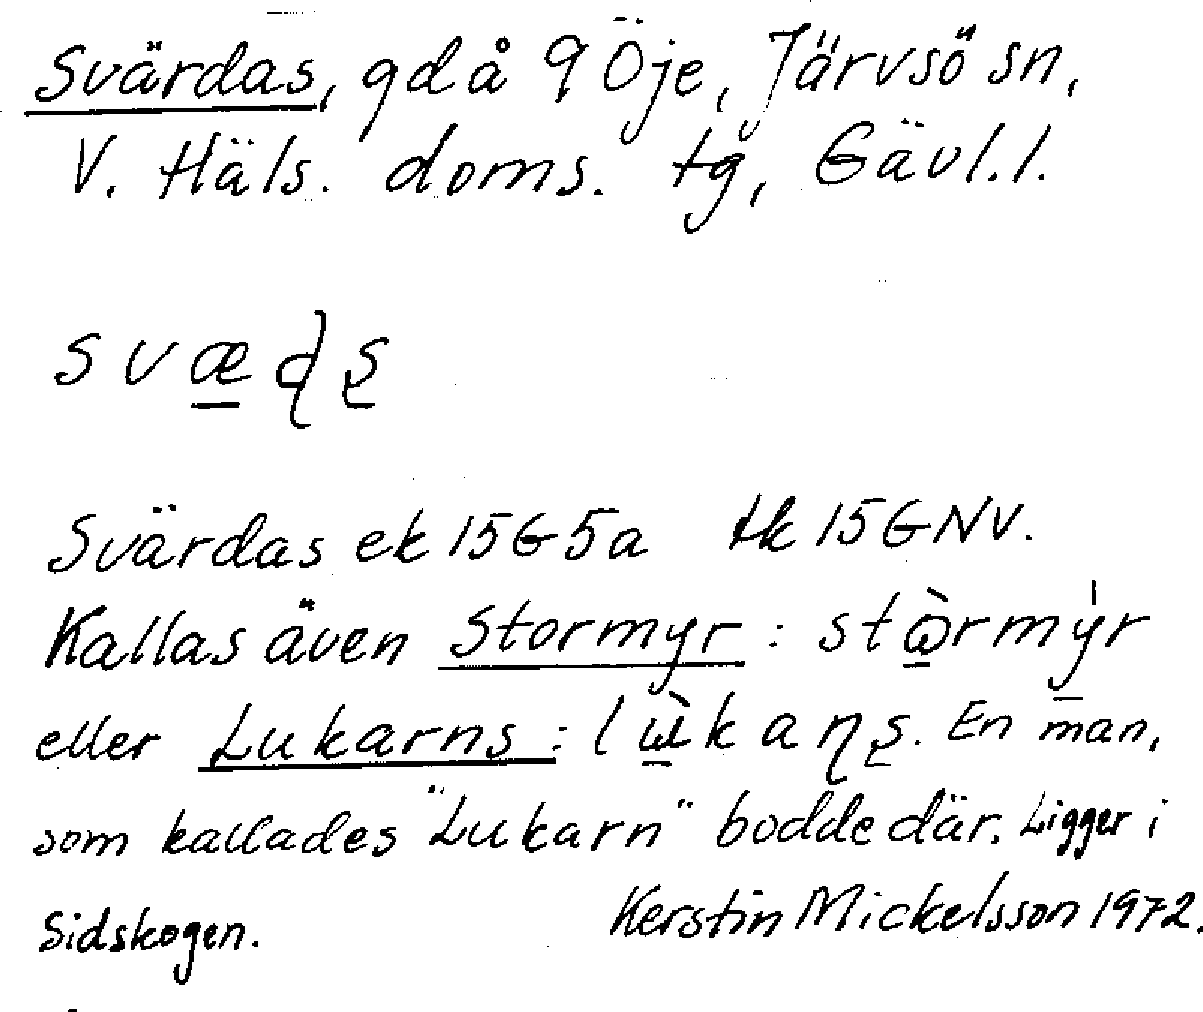 Svärdas, gdå 9 Öje, Järvsö sn,
V. Häls. doms. tg, Gävl. l.
svæɖʂ
Svärdas ek 15G5a tk 15GNV.
Kallas även Stormyr : stὼrmy̍r
eller Lukarns : lὼkaɳʂ. En man,
som kallades "Lukarn" bodde där. Ligger i
Sidskogen. Kerstin Mickelsson 1972.